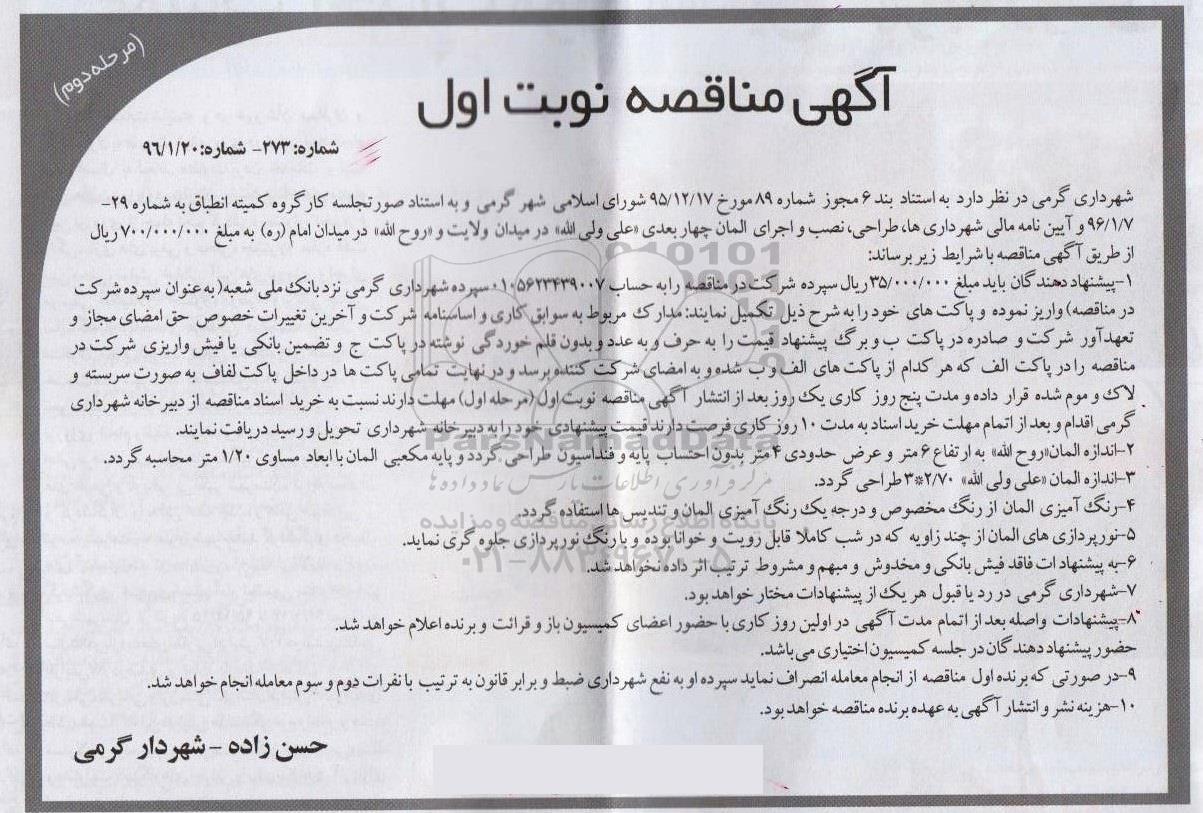 (مرحله دوم)
آگهی مناقصه نوبت اول
شماره: ۲۷۳- شماره: ۹۶/۱/۲۰
شهرداری گرمی در نظر دارد به استناد بند ۶ مجوز شماره ۸۹ مورخ ۹۵/۱۲/۱۷ شورای اسلامی شهر گرمی و به استناد صورتجلسه کارگروه کمیته انطباق به شماره ۲۹-
۹۶/۱/۷ و آیین نامه مالی شهرداری ها، طراحی، نصب و اجرای المان چهار بعدی «علی ولی الله» در میدان ولایت و «روح الله» در میدان امام (ره) به مبلغ ۷۰۰/۰۰۰/۰۰۰ ریال
از طریق آگهی مناقصه با شرایط زیر برساند:
۱-پیشنهاد دهندگان باید مبلغ ۳۵/۰۰۰/۰۰۰ ریال سپرده شرکت در مناقصه را به حساب ۰۱۰۵۶۲۳۴۳۹۰۰۷ سپرده شهرداری گرمی نزد بانک ملی شعبه( به عنوان سپرده شرکت
در مناقصه) واریز نموده و پاکت های خود را به شرح ذیل تکمیل نمایند: مدارک مربوط به سوابق کاری و اساسنامه شرکت و آخرین تغییرات خصوص حق امضای مجاز و
تعهدآور شرکت و صادره در پاکت ب و برگ پیشنهاد قیمت را به حرف و به عدد و بدون قلم خوردگی نوشته در پاکت ج و تضمین بانکی یا فیش واریزی شرکت در
مناقصه را در پاکت الف که هر کدام از پاکت های الف و ب شده و به امضای شرکت کننده برسد و در نهایت تمامی پاکت ها در داخل پاکت لفاف به صورت سربسته و
لاک و موم شده قرار داده و مدت پنج روز کاری یک روز بعد از انتشار آگهی مناقصه نوبت اول (مرحله اول) مهلت دارند نسبت به خرید اسناد مناقصه از دبیرخانه شهرداری
گرمی اقدام و بعد از اتمام مهلت خرید اسناد به مدت ۱۰ روز کاری فرصت دارند قیمت پیشنهادی خود را به دبیرخانه شهرداری تحویل و رسید دریافت نمایند.
۲-اندازه المان«روح الله» به ارتفاع ۶ متر و عرض حدودی ۴ متر بدون احتساب پایه و فنداسیون طراحی گردد و پایه مکعبی المان با ابعاد مساوی ۱/۲۰ متر محاسبه گردد.
۳-اندازه المان «علی ولی الله» ۲/۷۰*۳ طراحی گردد.
۴-رنگ آمیزی المان از رنگ مخصوص و درجه یک رنگ آمیزی المان و تندیس ها استفاده گردد.
۵-نورپردازی های المان از چند زاویه که در شب کاملا قابل رویت و خوانا بوده و با رنگ نورپردازی جلوه گری نماید.
۶-به پیشنهادات فاقد فیش بانکی و مخدوش و مبهم و مشروط ترتیب اثر داده نخواهد شد.
۷-شهرداری گرمی در رد یا قبول هر یک از پیشنهادات مختار خواهد بود.
۸-پیشنهادات واصله بعد از اتمام مدت آگهی در اولین روز کاری با حضور اعضای کمیسیون باز و قرائت و برنده اعلام خواهد شد.
حضور پیشنهاد دهندگان در جلسه کمیسیون اختیاری می باشد.
۹-در صورتی که برنده اول مناقصه از انجام معامله انصراف نماید سپرده او به نفع شهرداری ضبط و برابر قانون به ترتیب با نفرات دوم و سوم معامله انجام خواهد شد.
۱۰-هزینه نشر و انتشار آگهی به عهده برنده مناقصه خواهد بود.
حسن زاده - شهردار گرمی
ParsNamadData
مرکز فرآوری اطلاعات پارس نماد داده ها
پایگاه اطلاع رسانی مناقصه و مزایده
۰۲۱-۸۸۳۴۹۶۷۰-۵